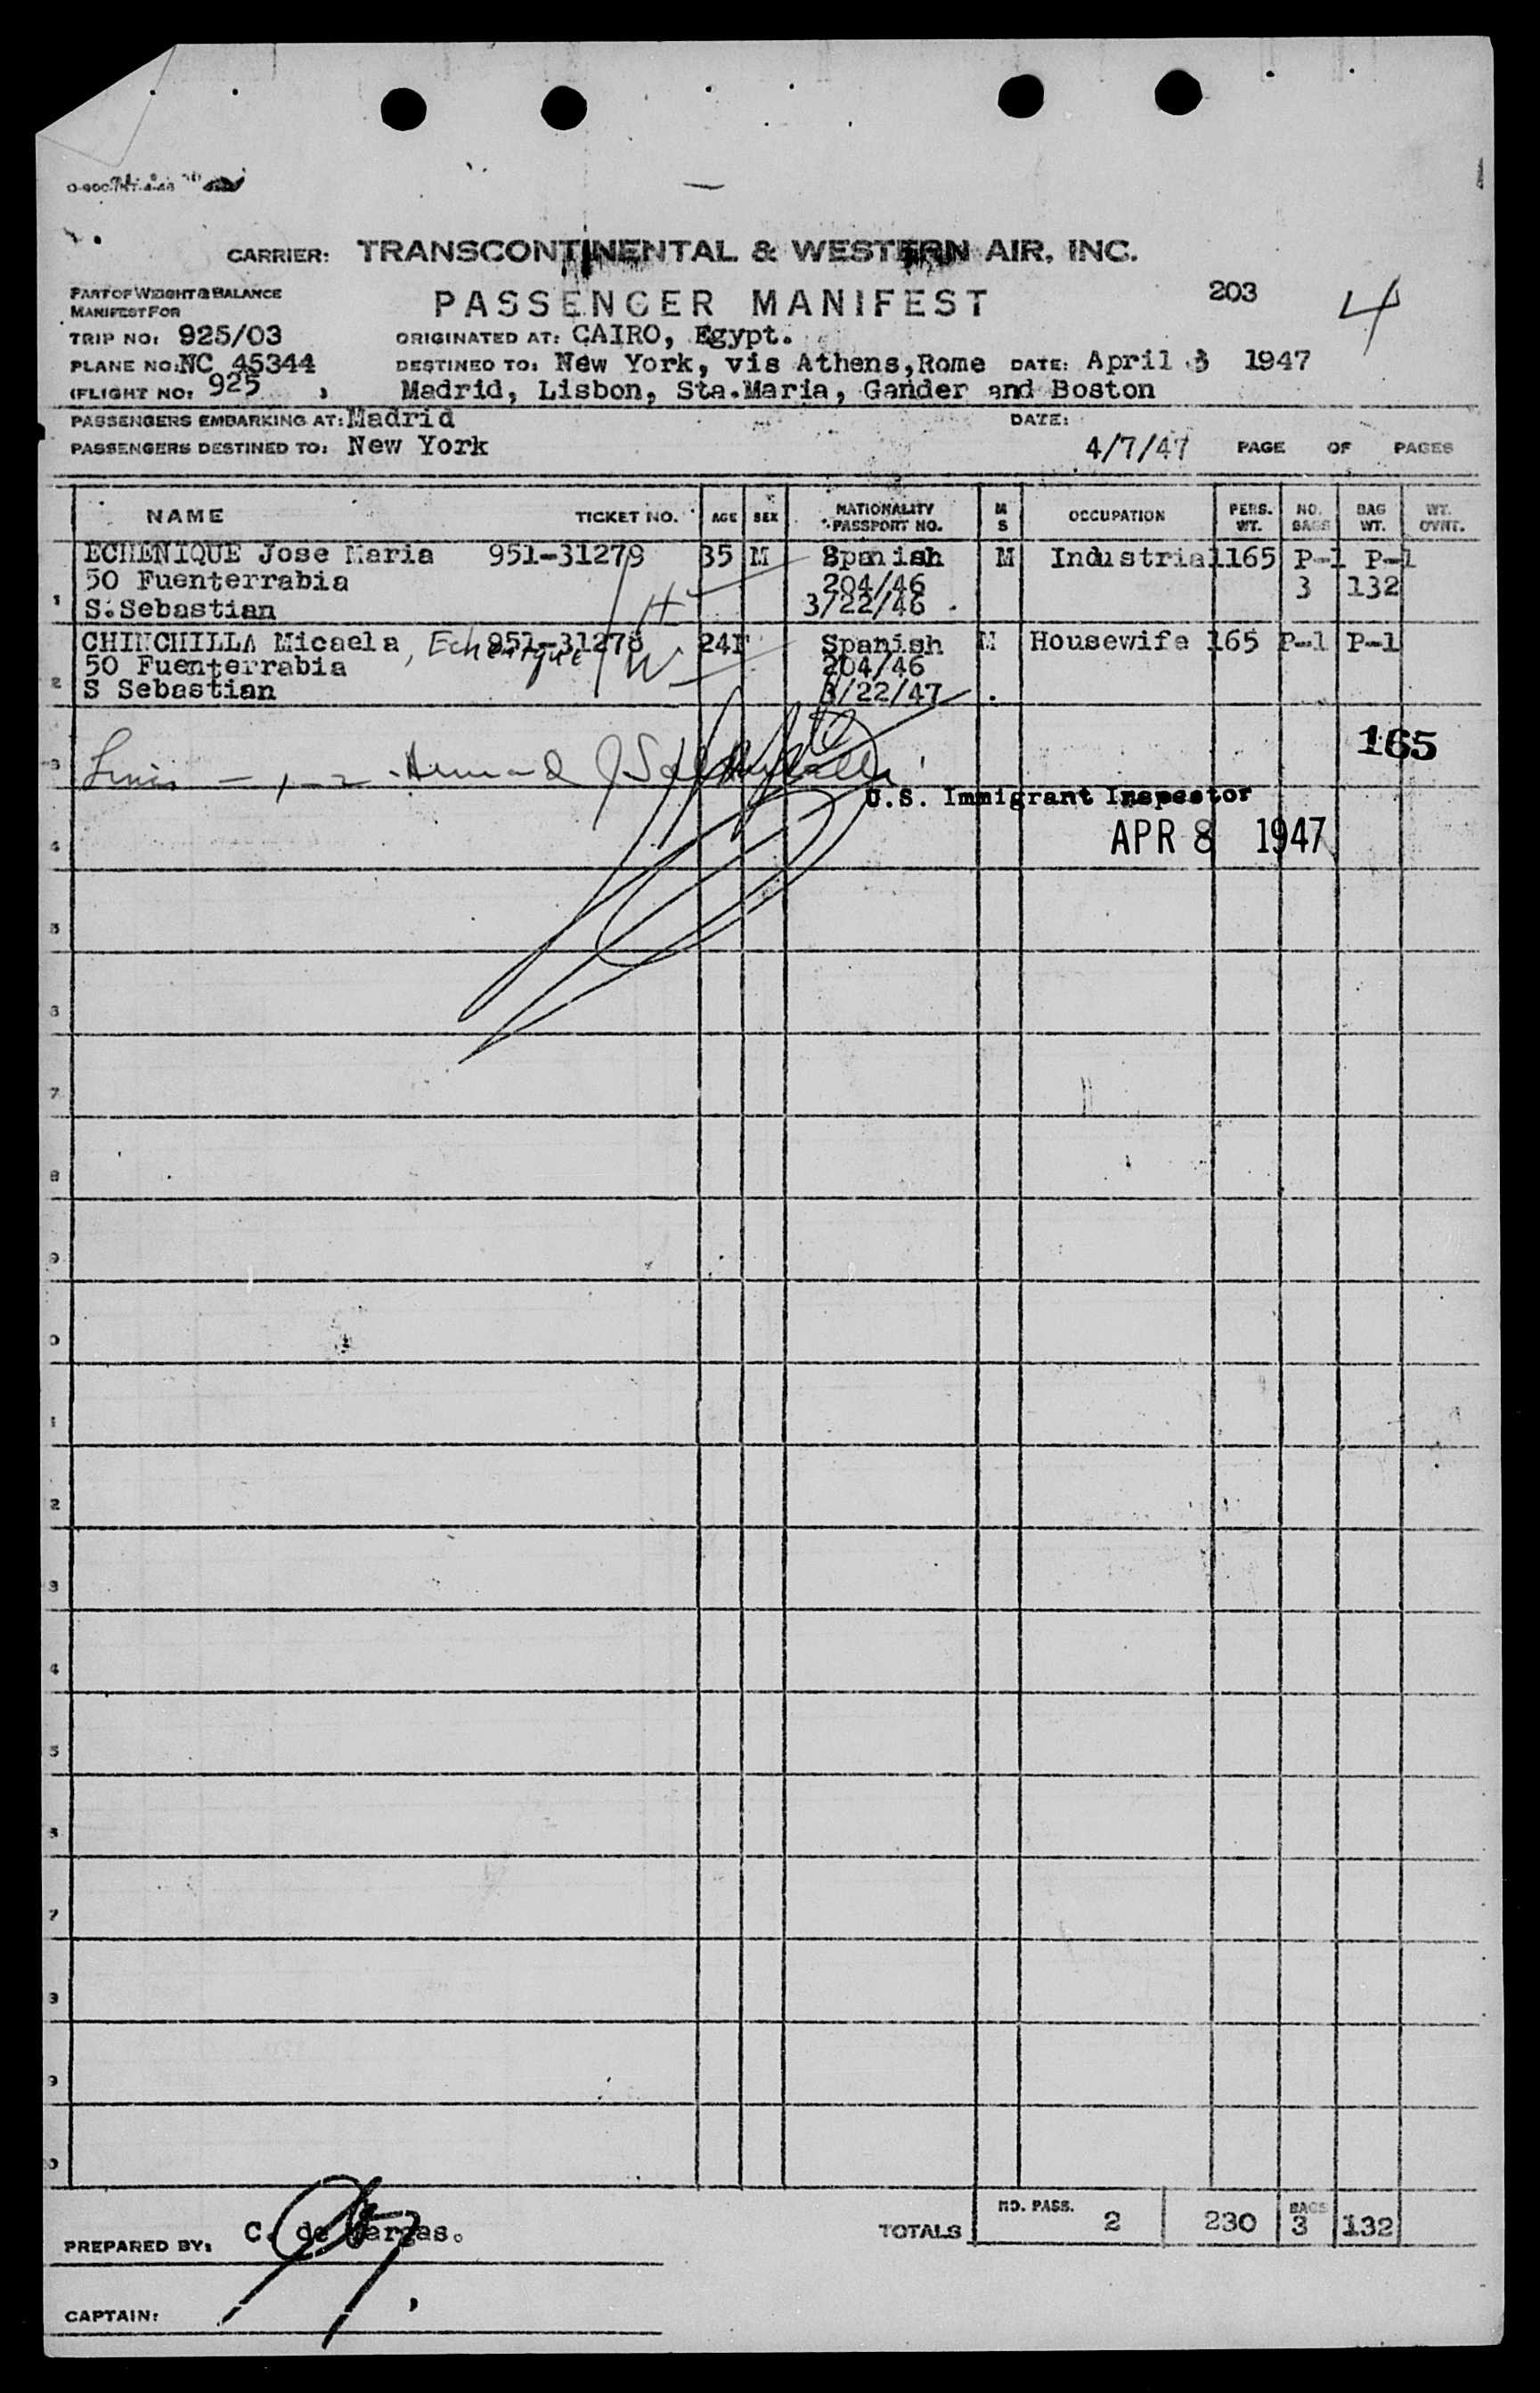 CARRIER: TRANSCONTINENTAL & WESTERN AIR, INC.
PART OF WEIGHT & BALANCE
MANIFEST FOR
PASSENGER MANIFEST 203 4
TRIP NO: 925/03 ORIGINATED AT: CAIRO, Egypt.
PLANE NO: NC 45344 DESTINED TO: New York, vis Athens, Rome DATE: April 3 1947
(FLIGHT NO: 925 ) Madrid, Lisbon, Sta.Maria, Gander and Boston
PASSENGERS EMBARKING AT: Madrid DATE:
PASSENGERS DESTINED TO: New York 4/7/47 PAGE OF PAGES
NAME TICKET NO. AGE SEX NATIONALITY PASSPORT NO. M S OCCUPATION PERS. WT. NO. BAGS BAG WT. WT. OVNT.
ECHENIQUE Jose Maria 951-31279 35 M Spanish M Industrial 165 P-1 P-1
50 Fuenterrabia H 204/46 3 132
1 S.Sebastian 3/22/46
CHINCHILLA Micaela, Echenique 951-31278 24 F Spanish M Housewife 165 P-1 P-1
50 Fuenterrabia W 204/46
2 S Sebastian 3/22/47
165
3
U.S. Immigrant Inspector
4 APR 8 1947
5
6
7
8
9
0
1
2
3
4
5
6
7
8
9
0
NO. PASS. BAGS
PREPARED BY: C. de Vargas. TOTALS 2 230 3 132
CAPTAIN: